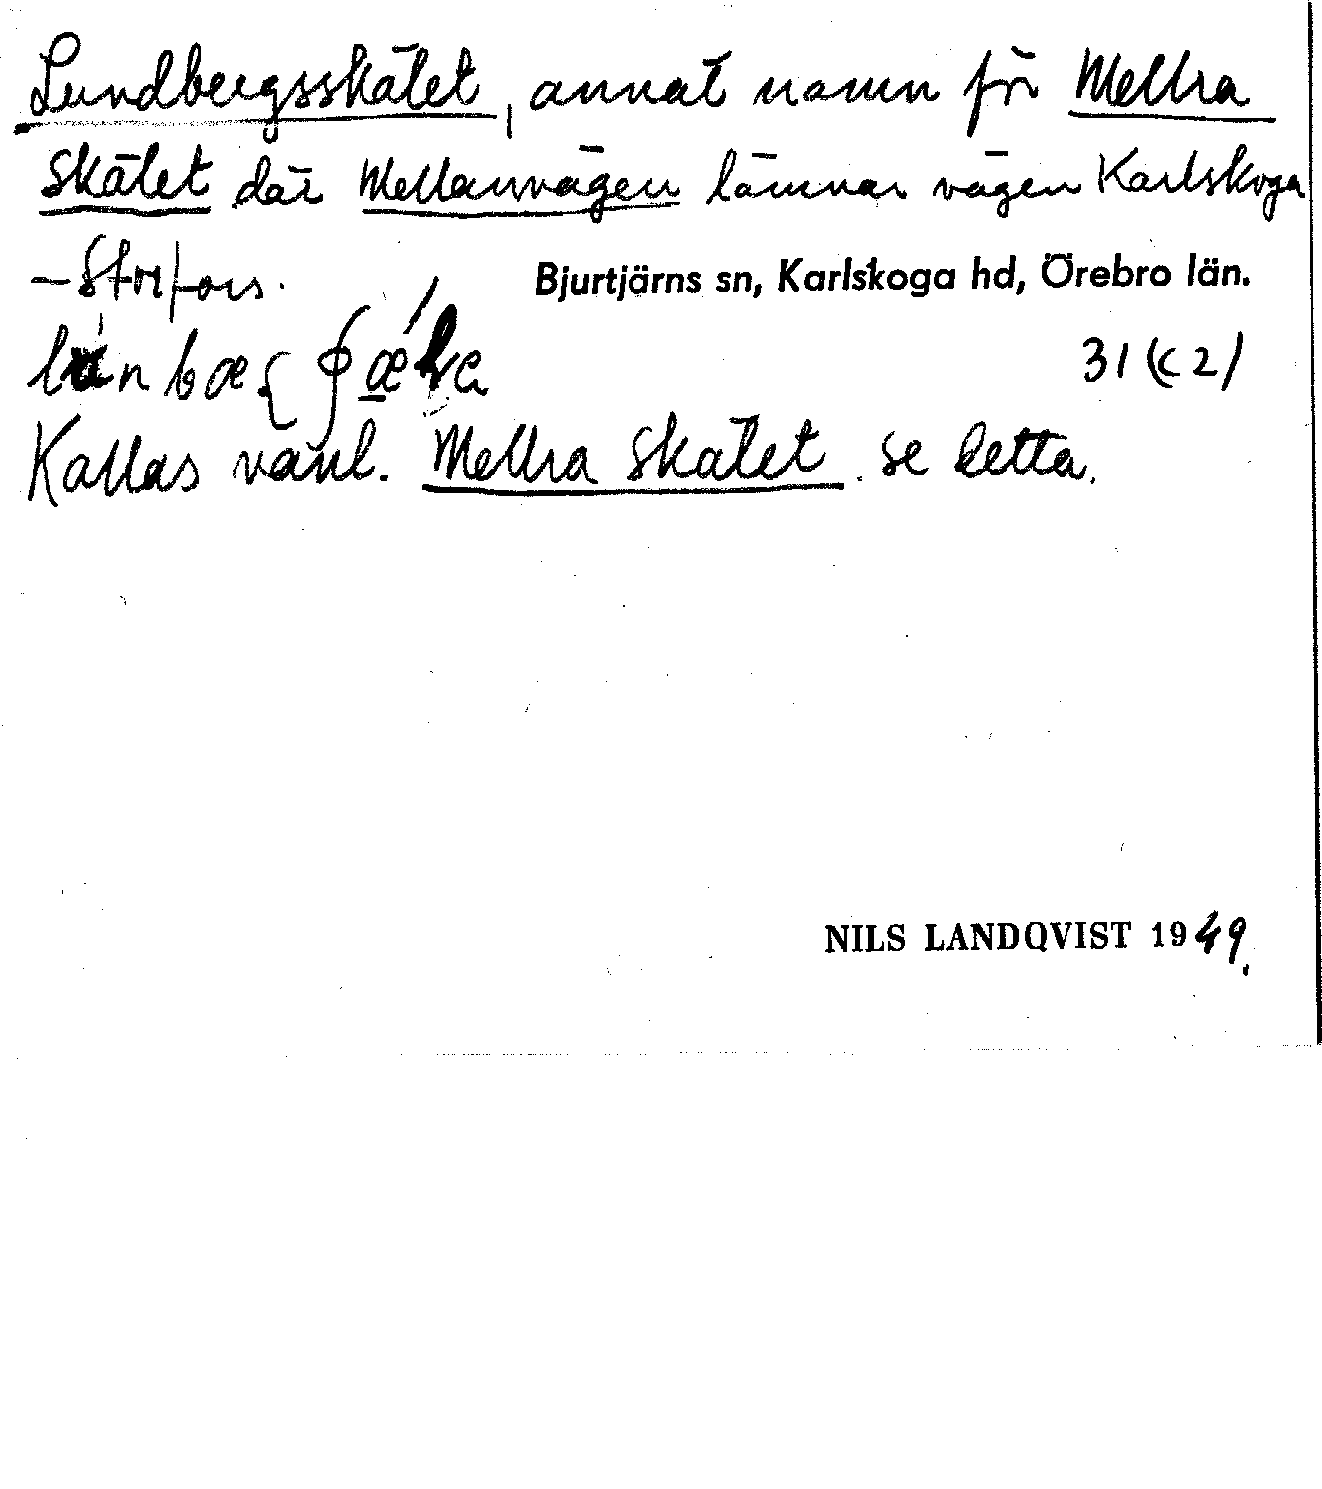 Lundbergsskälet, annat namn för Mellra
Skälet där Mellanvägen lämnar vägen Karlskoga
– Storfors. Bjurtjärns sn, Karlskoga hd, Örebro län.
31 (c 2)
Kallas vanl. Mellra Skälet. se detta.
NILS LANDQVIST 1949.